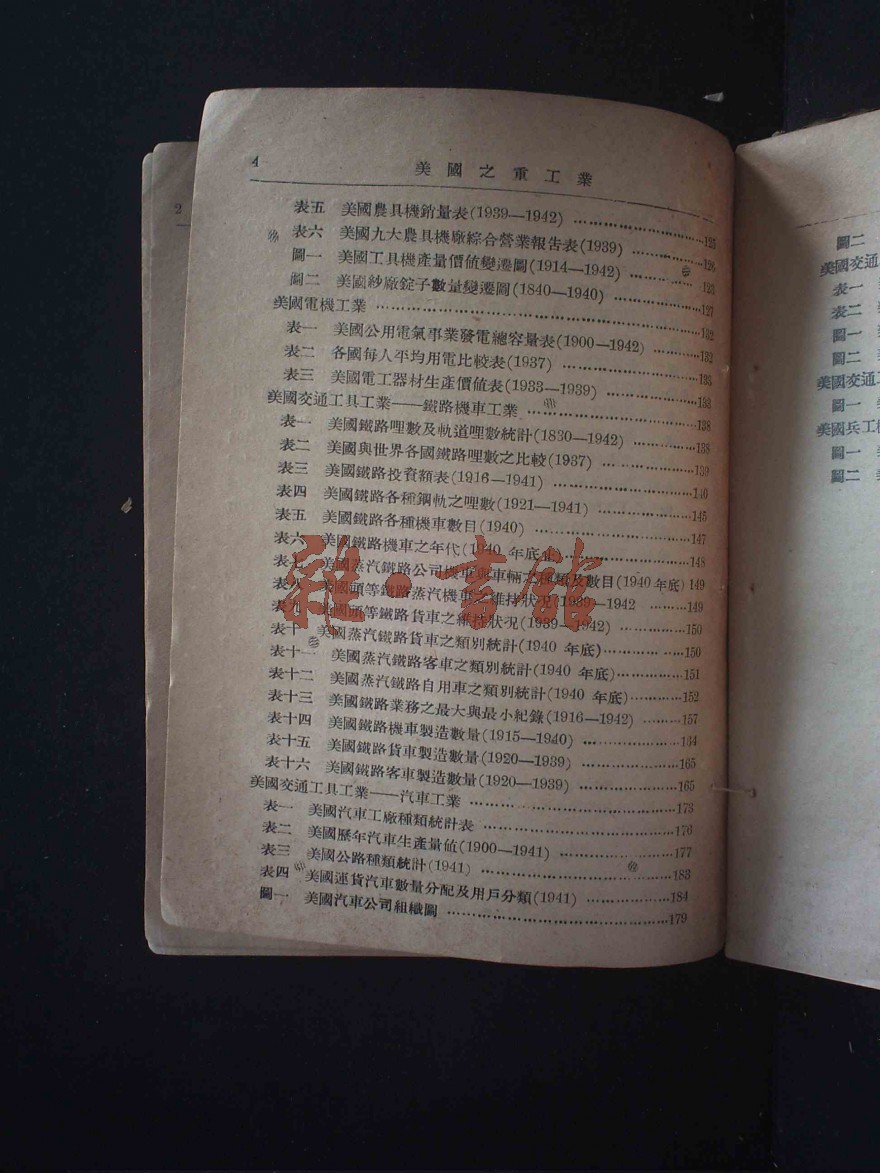 4
美國之重工業
表五 美國農具機銷量表(1939—1942) ……………………125
表六 美國九大農具機廠綜合營業報告表(1939) ……………126
圖一 美國工具機產量價值變遷圖(1914—1942) ……………123
圖二 美國紗廠錠子數量變遷圖(1840—1940) ………………127
美國電機工業 ……………………………………………………132
表一 美國公用電氣事業發電總容量表(1900—1942) ………132
表二 各國每人平均用電比較表(1937) ………………………133
表三 美國電工器材生產價值表(1933—1939) ………………133
美國交通工具工業——鐵路機車工業 …………………………138
表一 美國鐵路哩數及軌道哩數統計(1830—1942) …………138
表二 美國與世界各國鐵路哩數之比較(1937) ………………139
表三 美國鐵路投資額表(1916—1941) ………………………140
表四 美國鐵路各種鋼軌之哩數(1921—1941) ………………145
表五 美國鐵路各種機車數目(1940) …………………………147
表六 美國鐵路機車之年代(1940 年底止 ……………………148
表七 美國蒸汽鐵路公司機車與車輛之種類及數目(1940 年底) 149
表八 美國頭等鐵路蒸汽機車之維持狀況(1939—1942 ………149
表九 美國頭等鐵路貨車之維持狀況(1939—1942) …………150
表十 美國蒸汽鐵路貨車之類別統計(1940 年底)……………150
表十一 美國蒸汽鐵路客車之類別統計(1940 年底)…………151
表十二 美國蒸汽鐵路自用車之類別統計(1940 年底)………152
表十三 美國鐵路業務之最大與最小紀錄(1916—1942) ……157
表十四 美國鐵路機車製造數量(1915—1940) ………………164
表十五 美國鐵路貨車製造數量(1920—1939) ………………165
表十六 美國鐵路客車製造數量(1920—1939) ………………165
美國交通工具工業——汽車工業 ………………………………173
表一 美國汽車工廠種類統計表 ………………………………176
表二 美國歷年汽車生產量值(1900—1941) …………………177
表三 美國公路種類統計(1941) ………………………………183
表四 美國運貨汽車數量分配及用戶分類(1941) ……………184
圖一 美國汽車公司組織圖 ……………………………………179
雜·書館
2
圖二
美國交通
表一
表二
圖一
圖二
美國交通工
圖一
美國兵工
圖一
圖二